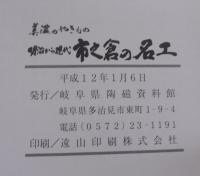 美濃のやきもの
明治から現代 市之倉の名工
平成12年1月6日
発行/岐阜県陶磁資料館
岐阜県多治見市東町1-9-4
電話(0572)23-1191
印刷/遠山印刷株式会社